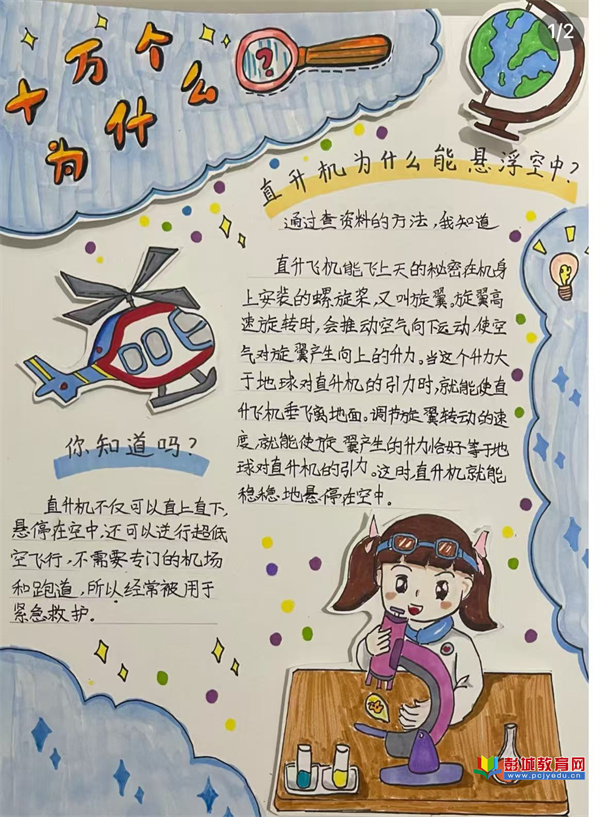 1/2
十万个
为什么
?
直升机为什么能悬浮空中?
通过查资料的方法,我知道
直升飞机能飞上天的秘密在机身
上安装的螺旋桨,又叫旋翼。旋翼高
速旋转时,会推动空气向下运动,使空
气对旋翼产生向上的升力。当这个升力大
于地球对直升机的引力时,就能使直
升飞机垂飞离地面。调节旋翼转动的速
度,就能使旋翼产生的升力恰好等于地
球对直升机的引力。这时,直升机就能
稳稳地悬停在空中.
你知道吗?
直升机不仅可以直上直下,
悬停在空中,还可以进行超低
空飞行,不需要专门的机场
和跑道,所以经常被用于
紧急救护.
彭城教育网
www.pcjyedu.cn